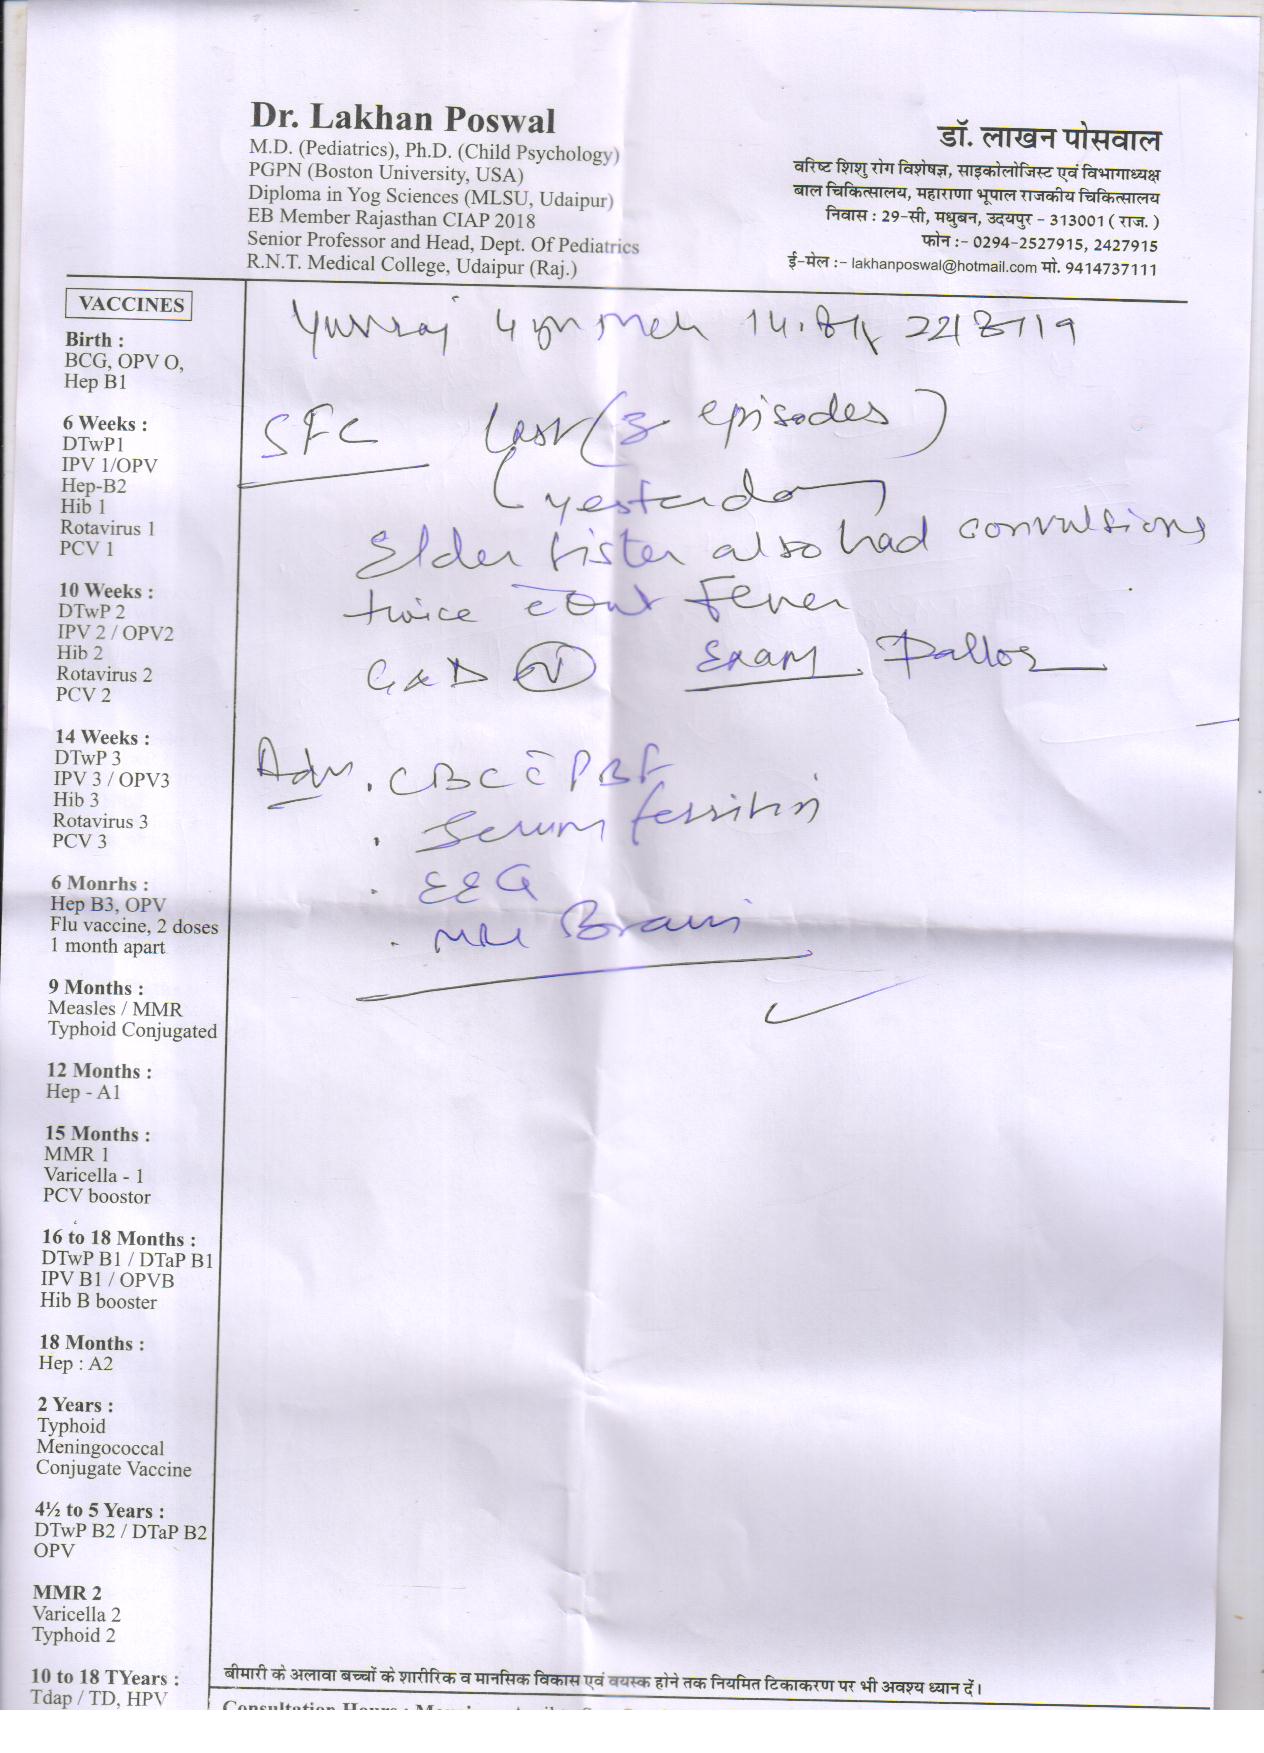 Dr. Lakhan Poswal
M.D. (Pediatrics), Ph.D. (Child Psychology)
PGPN (Boston University, USA)
Diploma in Yog Sciences (MLSU, Udaipur)
EB Member Rajasthan CIAP 2018
Senior Professor and Head, Dept. Of Pediatrics
R.N.T. Medical College, Udaipur (Raj.)
डॉ. लाखन पोसवाल
वरिष्ट शिशु रोग विशेषज्ञ, साइकोलोजिस्ट एवं विभागाध्यक्ष
बाल चिकित्सालय, महाराणा भूपाल राजकीय चिकित्सालय
निवास : 29-सी, मधुबन, उदयपुर - 313001 ( राज. )
फोन :- 0294-2527915, 2427915
ई-मेल :- lakhanposwal@hotmail.com मो. 9414737111
VACCINES
Birth :
BCG, OPV O,
Hep B1
6 Weeks :
DTwP1
IPV 1/OPV
Hep-B2
Hib 1
Rotavirus 1
PCV 1
10 Weeks :
DTwP 2
IPV 2 / OPV2
Hib 2
Rotavirus 2
PCV 2
14 Weeks :
DTwP 3
IPV 3 / OPV3
Hib 3
Rotavirus 3
PCV 3
6 Monrhs :
Hep B3, OPV
Flu vaccine, 2 doses
1 month apart
9 Months :
Measles / MMR
Typhoid Conjugated
12 Months :
Hep - A1
15 Months :
MMR 1
Varicella - 1
PCV boostor
16 to 18 Months :
DTwP B1 / DTaP B1
IPV B1 / OPVB
Hib B booster
18 Months :
Hep : A2
2 Years :
Typhoid
Meningococcal
Conjugate Vaccine
4½ to 5 Years :
DTwP B2 / DTaP B2
OPV
MMR 2
Varicella 2
Typhoid 2
10 to 18 TYears :
Tdap / TD, HPV
Yuvraj 4 yr 22/8/19
SFC Last (3 episodes)
(yesterday
Elder sister also had convulsions
twice c̄out Fever
G&D (N) Exam. Pallor
Adv. CBC c̄ PBF
. Serum ferritin
. EEG
. MRI Brain
बीमारी के अलावा बच्चों के शारीरिक व मानसिक विकास एवं वयस्क होने तक नियमित टिकाकरण पर भी अवश्य ध्यान दें।
Consultation Hours :